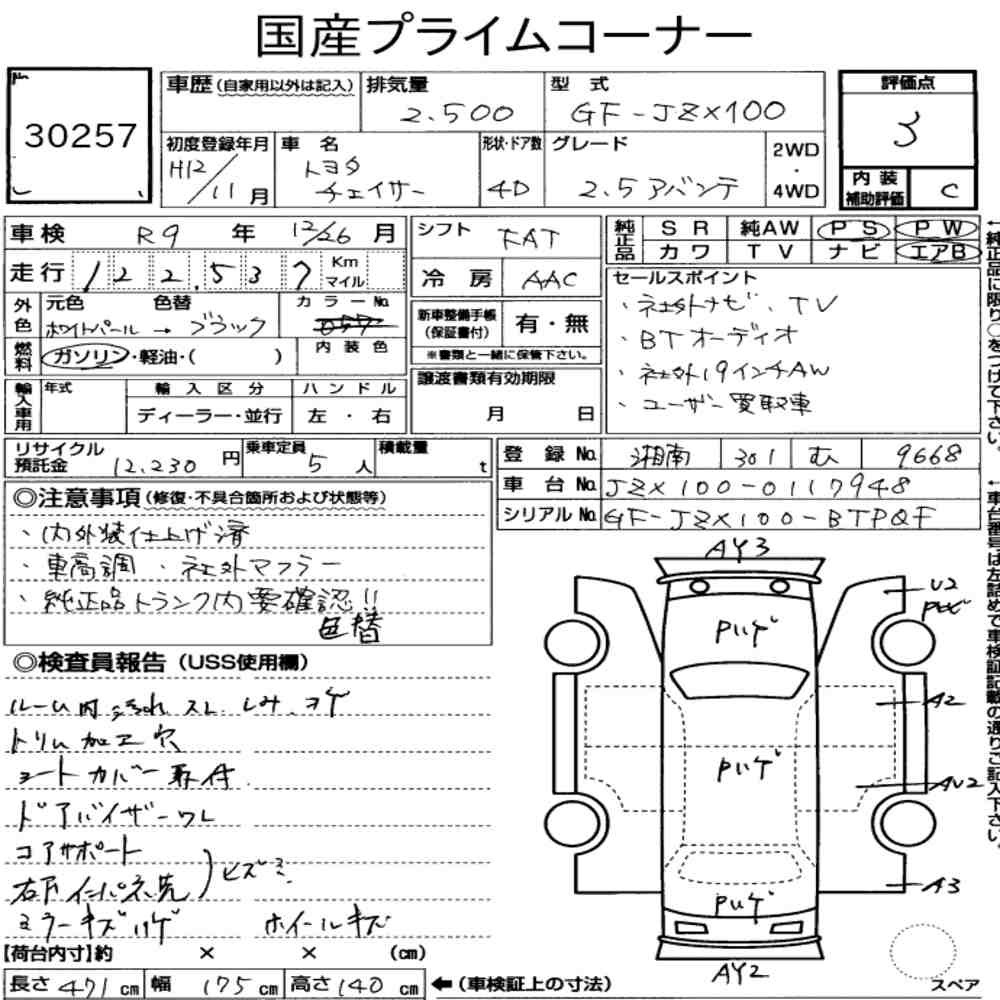 国産プライムコーナー
No
30257
車歴(自家用以外は記入)
排気量
2.500
型式
GF-JZX100
評価点
3
初度登録年月
H12/11月
車名
トヨタ
チェイサー
形状・ドア数
4D
グレード
2.5アバンテ
2WD
・
4WD
内装
補助評価
C
車検 R9年 12/26月
シフト FAT
純正品
SR 純AW PS PW
カワ TV ナビ エアB
走行 122,537 Km マイル
冷房 AAC
セールスポイント
・社外ナビ、TV
・BTオーディオ
・社外19インチAW
・ユーザー買取車
外色
元色 色替
ホワイトパール → ブラック
カラーNo.
057
新車整備手帳
(保証書付)
有・無
※書類と一緒に保管下さい。
燃料
ガソリン・軽油・( )
内装色
輸入車用
年式
輸入区分
ディーラー・並行
ハンドル
左・右
譲渡書類有効期限
月 日
リサイクル
預託金 12.230円
乗車定員
5人
積載量
t
登録No. 湘南 301 む 9668
車台No. JZX100-0117948
シリアルNo. GF-JZX100-BTPQF
←純正品に限り○をつけて下さい。
←車台番号は左詰めで車検証記載の通りご記入下さい。
◎注意事項(修復・不具合箇所および状態等)
・内外装仕上げ済
・車高調 ・社外マフラー
・純正品トランク内要確認!!
色替
◎検査員報告(USS使用欄)
ルーム内汚れ スレ しみ コゲ
トリム加工穴
シートカバー取付
ドアバイザーワレ
コアサポート
右下インパネ先
ミラーキズハゲ ホイールキズ
AY3
Pハゲ
U2
A2
Pハゲ
AU2
Pハゲ
A3
AY2
スペア
【荷台内寸】約 × × (cm)
長さ471cm 幅175cm 高さ140cm ←(車検証上の寸法)